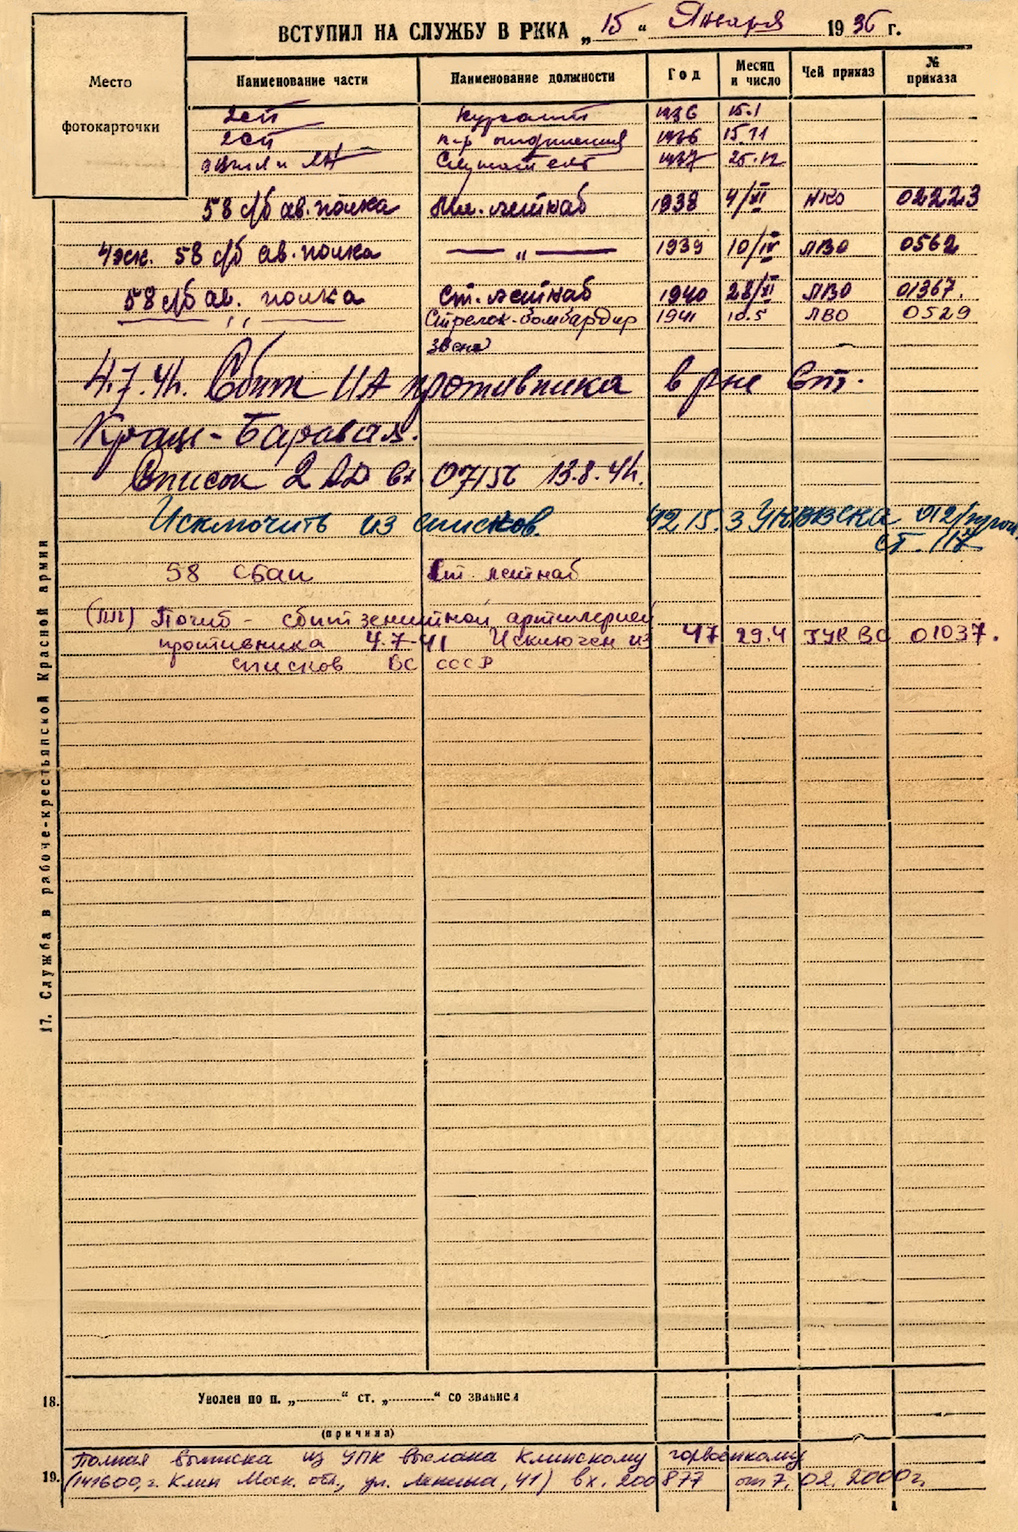 ВСТУПИЛ НА СЛУЖБУ В РККА „15“ Января 1936 г.
Место фотокарточки
Наименование части Наименование должности Год Месяц и число Чей приказ № приказа
2сп Курсант 1936 15.1
2сп к-р отделения 1936 15.11
Слушатель 1937 25.12
58 с/б ав. полка Мл. летнаб 1938 4/VI НКО 02223
4 эск. 58 с/б ав. полка — „ — 1939 10/IV ЛВО 0562
58 с/б ав. полка Ст. летнаб 1940 28/VI ЛВО 01367.
Стрелок-бомбардир 1941 10.5 ЛВО 0529
звена
4.7.41. Сбит ИА противника в р-не ст.
Баравая.
Список 2 АД вх 07156 13.8.41.
Исключить из списков. 42 15.3 012
58 СБАП Ст. летнаб
(пп) Погиб - сбит зенитной артилерией
противника 4.7-41 Исключен из 47 29.4 ГУК ВС 01037.
списков ВС СССР
17. Служба в рабоче-крестьянской Красной армии
18. Уволен по п. „ “ ст. „ “ со звания
(причина)
19. Полная выписка из УПК выслана Клинскому горвоенкому
(141600, г. Клин Моск. обл., ул. Ленина, 41) вх. 200877 от 7.02.2000г.